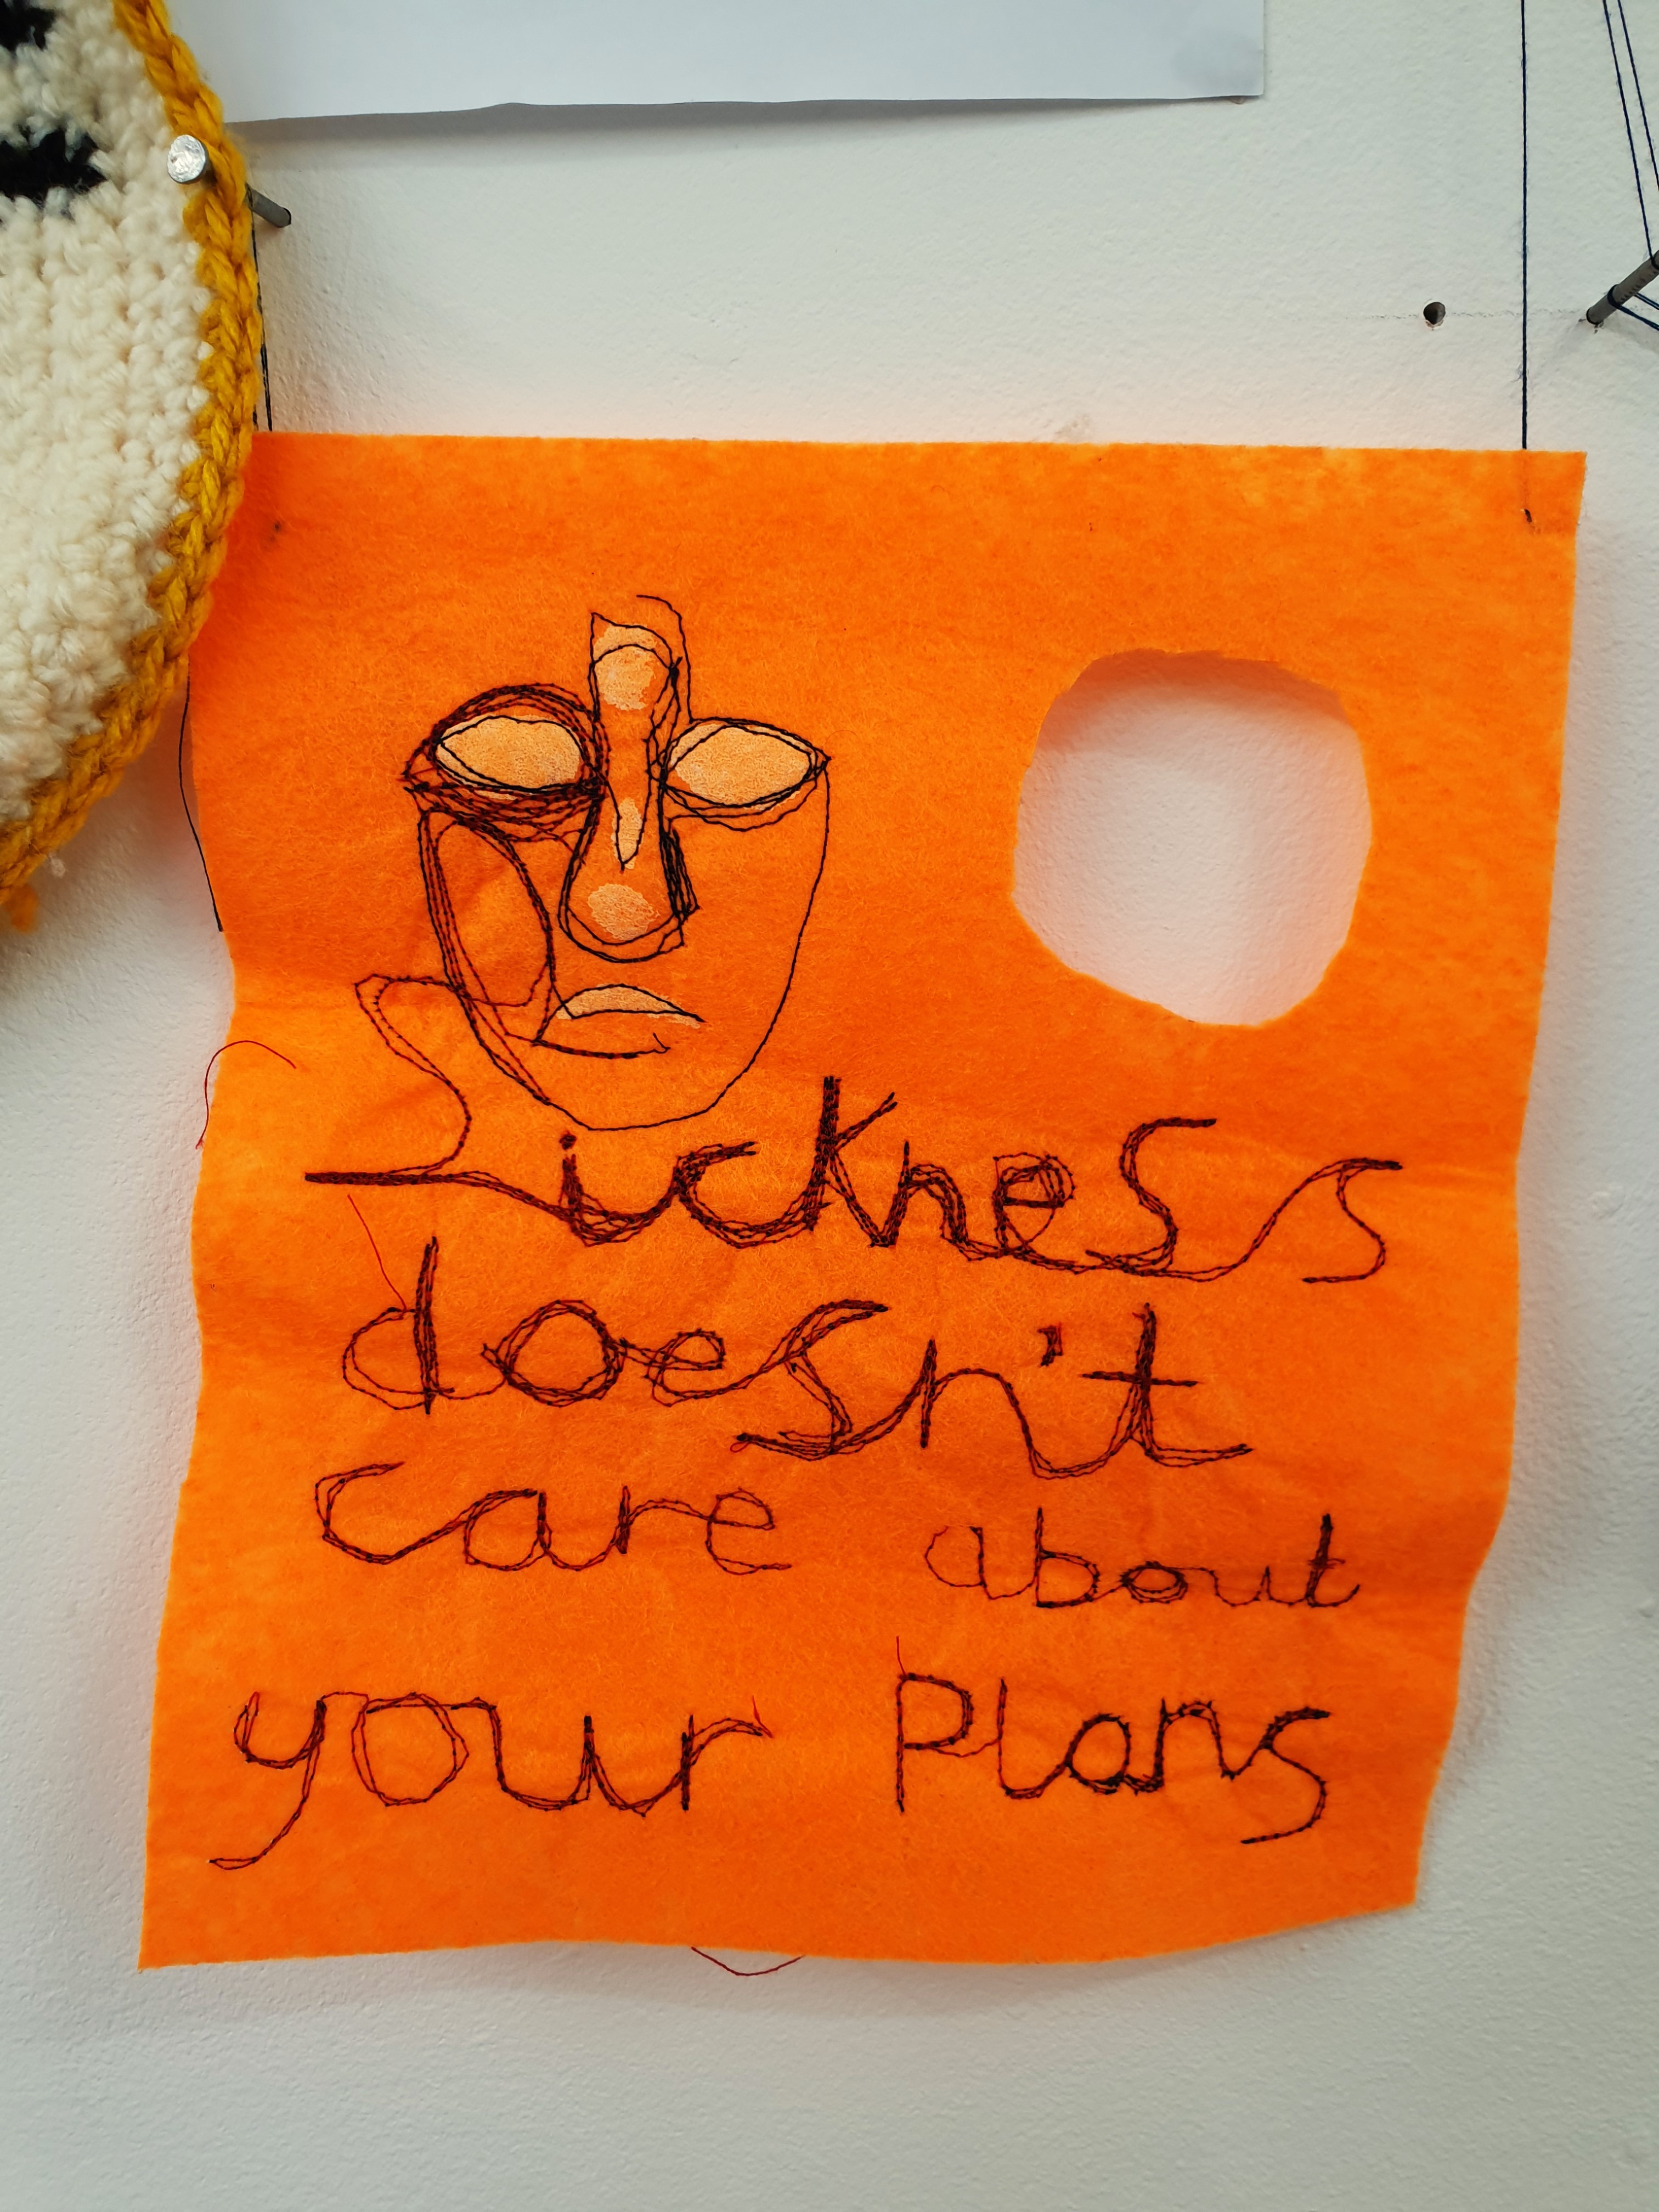 Sickness
doesn't
care about
your Plans